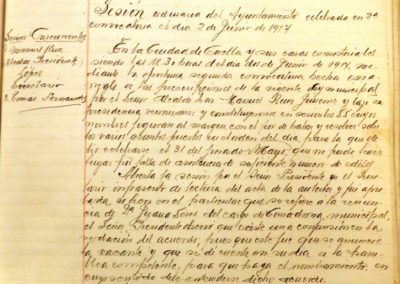 Sesión ordinaria del Ayuntamiento celebrada en 2ª
convocatoria el día 2 de Junio de 1917
Señores Concurrentes
Manuel Ruiz
Presidente
López
Secretario
Tomás Fernández
En la Ciudad de Coella y sus casas consistoriales
siendo las horas del día dos de Junio de 1917, me
diante la oportuna segunda convocatoria hecha con a
rreglo a las prescripciones de la vigente ley municipal
por el Señor Alcalde Don Manuel Ruiz Jiménez y bajo su
presidencia se reunieron y constituyeron en sesión los SS con
nombres figuran al margen con el fin de tratar y resolver sobre
los varios asuntos puestos en el orden del día para la que de
bió celebrarse el 31 del pasado Mayo, que no pudo tener
lugar por falta de asistencia de suficiente número de ediles
Abierta la sesión por el Señor Presidente el Secre
tario di lectura del acta de la anterior y fue apro
bada, si bien en el particular que se refiere a la renun
cia de Dª del cargo de Comadrona municipal,
el Señor Presidente observó que existe una confusión en la
redacción del acuerdo, pues que este fue que se anuncie
la vacante y que se dé cuenta en su día a la
competente, para que haga el nombramiento en
debe entenderse dicho acuerdo